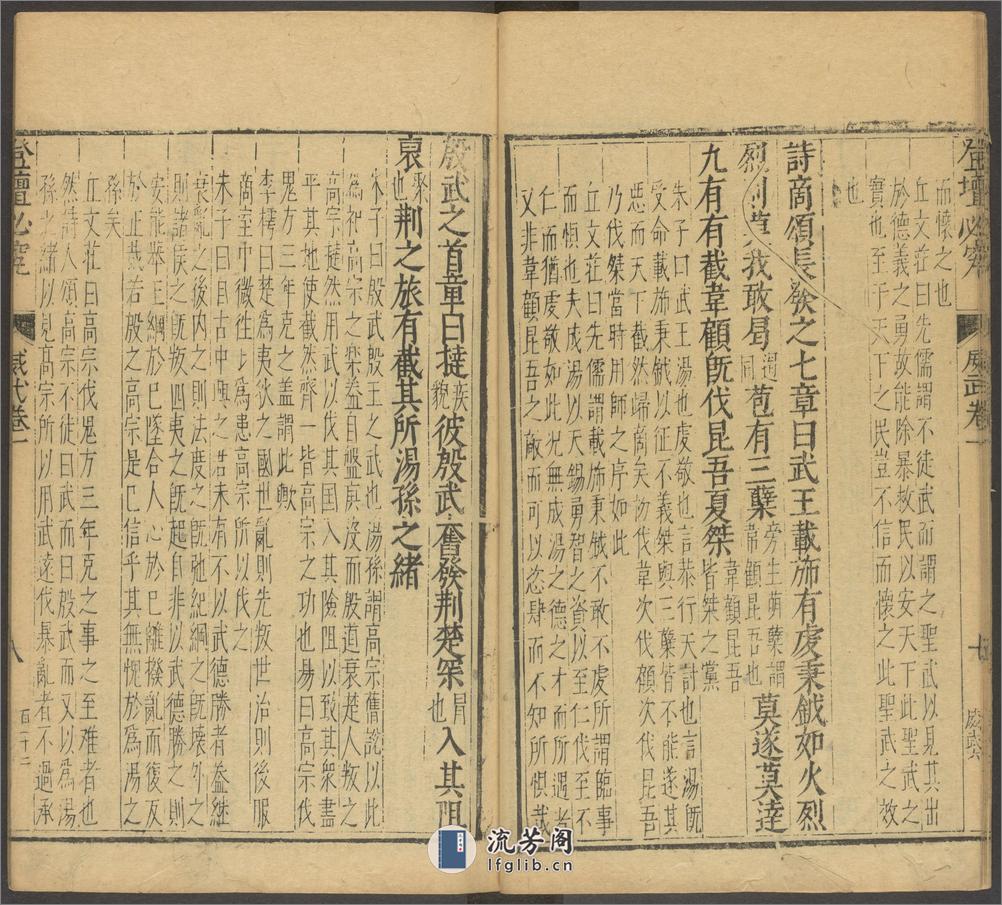 登壇必究
威武卷一
十
威武六
而懷之也
丘文莊曰先儒謂不徒武而謂之聖武以見其出
於德義之勇故能除暴救民以安天下此聖武之
實也至于天下之民豈不信而懷之此聖武之效
也
詩商頌長發之七章曰武王載斾有虔秉鉞如火烈
烈則莫我敢曷遏同苞有三櫱旁生萌櫱謂韋顧昆吾也莫遂莫達
九有有截韋顧既伐昆吾夏桀韋顧昆吾皆桀之黨
朱子曰武王湯也虔敬也言恭行天討也言湯既
受命載斾秉鉞以征不義桀與三櫱皆不能遂其
惡而天下截然歸商矣初伐韋次伐顧次伐昆吾
乃伐桀當時用師之序如此
丘文莊曰先儒謂載斾秉鉞不敢不虔所謂臨事
而懼也夫成湯以天錫勇智之資以至仁伐至不
仁而猶虔敬如此况無成湯之德之才而所遇者
又非韋顧昆吾之敵而可以恣肆而不知所懼哉
殷武之首章曰撻疾貌彼殷武奮發荆楚罙冒也入其阻
裒聚也荆之旅有截其所湯孫之緒
朱子曰殷武殷王之武也湯孫謂高宗舊說以此
為祀高宗之樂葢自盤庚沒而殷道衰楚人叛之
高宗撻然用武以伐其國入其險阻以致其衆盡
平其地使截然齊一皆高宗之功也易曰高宗伐
鬼方三年克之葢謂此歟
李樗曰楚為夷狄之國世亂則先叛世治則後服
商至中微徃徃為患高宗所以伐之
朱子曰自古中興之君未有不以武德勝者葢繼
衰亂之後内之則法度之既弛紀綱之既壞外之
則諸侯之既叛四夷之既起自非以武德勝之則
安能舉王綱於已墜合人心於已離撥亂而復反
於正哉若殷之高宗是已信乎其無愧於為湯之
孫矣
丘文莊曰高宗伐鬼方三年克之事之至难者也
然詩人頌高宗不徒曰武而曰殷武而又以為湯
孫之緒以見高宗所以用武遠伐暴亂者不過承
登壇必究
威武卷一
八
百二十二
流芳阁
lfglib.cn